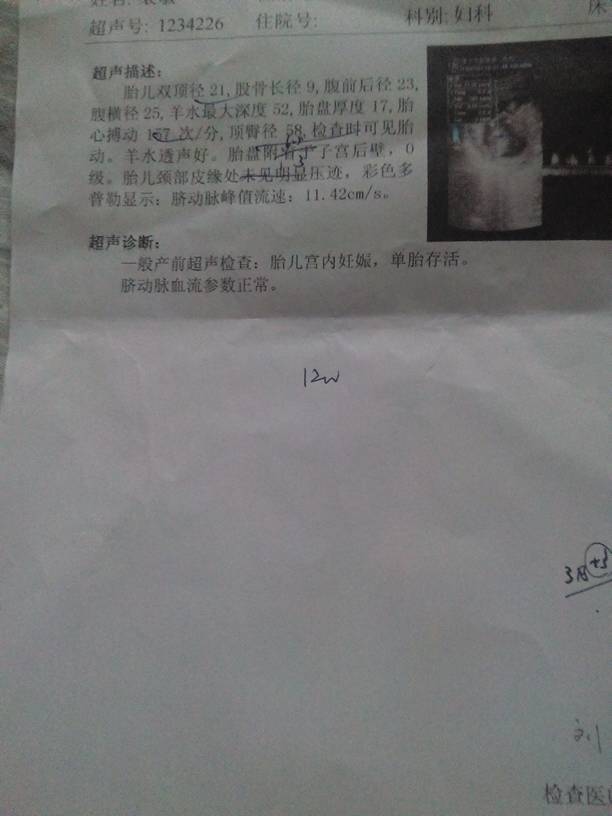 超声号: 1234226 住院号: 科别: 妇科 床
超声描述:
胎儿双顶径 21, 股骨长径 9, 腹前后径 23,
腹横径 25, 羊水最大深度 52, 胎盘厚度 17, 胎
心搏动 157 次/分, 顶臀径 58, 检查时可见胎
动。羊水透声好。胎盘附着于子宫后壁, 0
级。胎儿颈部皮缘处未见明显压迹, 彩色多
普勒显示: 脐动脉峰值流速: 11.42cm/s。
超声诊断:
一般产前超声检查: 胎儿宫内妊娠, 单胎存活。
脐动脉血流参数正常。
12w
刘
检查医